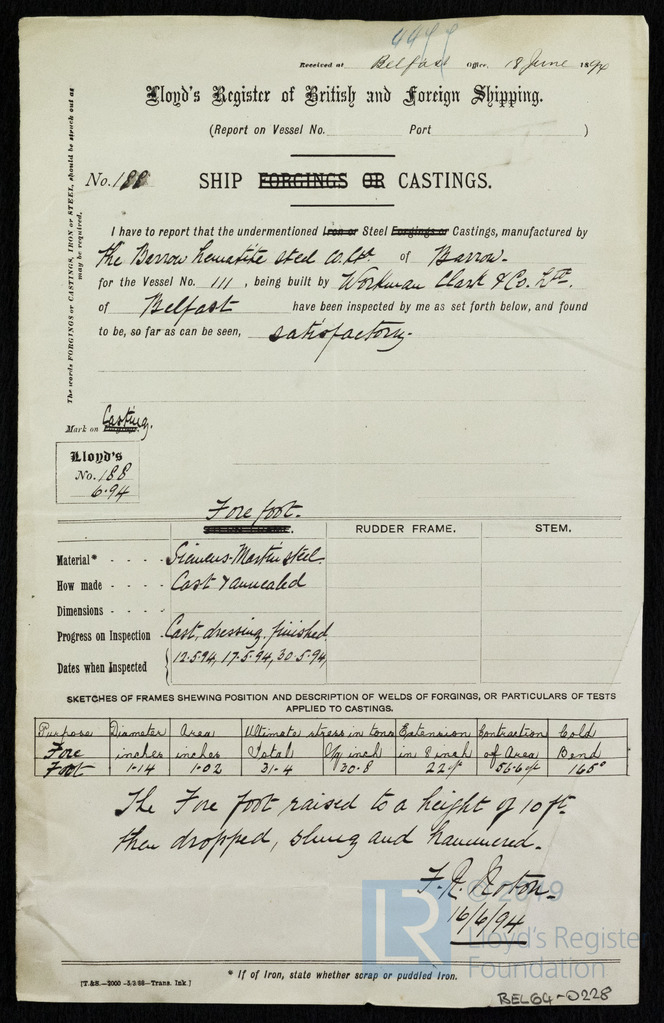 4497
Received at Belfast Office, 18 June 1894
Lloyd's Register of British and Foreign Shipping.
(Report on Vessel No. Port )
No. 188
SHIP FORGINGS OR CASTINGS.
The words FORGINGS or CASTINGS, IRON or STEEL, should be struck out as may be required.
I have to report that the undermentioned Iron or Steel Forgings or Castings, manufactured by
the Barrow hematite steel Co. Ltd. of Barrow.
for the Vessel No. 111, being built by Workman Clark & Co. Ltd.
of Belfast have been inspected by me as set forth below, and found
to be, so far as can be seen, satisfactory.
Casting.
Mark on
Lloyd's
No. 188
6.94
Fore foot.
RUDDER FRAME. STEM.
Material* - - - - Siemens-Martin steel.
How made - - - - Cast & annealed
Dimensions - - - -
Progress on Inspection Cast, dressing, finished,
Dates when Inspected 12.5.94, 17.5.94, 30.5.94,
SKETCHES OF FRAMES SHEWING POSITION AND DESCRIPTION OF WELDS OF FORGINGS, OR PARTICULARS OF TESTS
APPLIED TO CASTINGS.
Purpose Diameter Area Ultimate stress in tons Extension Contraction Cold
Fore inches inches Total P inch in 8 inch of Area Bend
Foot 1.14 1.02 31.4 30.8 22% 56.6% 165°
The Fore foot raised to a height of 10 ft.
then dropped, slung and hammered.
F. R. Noton.
16/6/94
© 2019
LR Lloyd's Register
Foundation
* If of Iron, state whether scrap or puddled Iron.
[T.&S.—2000—3/3/88—Trans. Ink.]
BEL64-0228